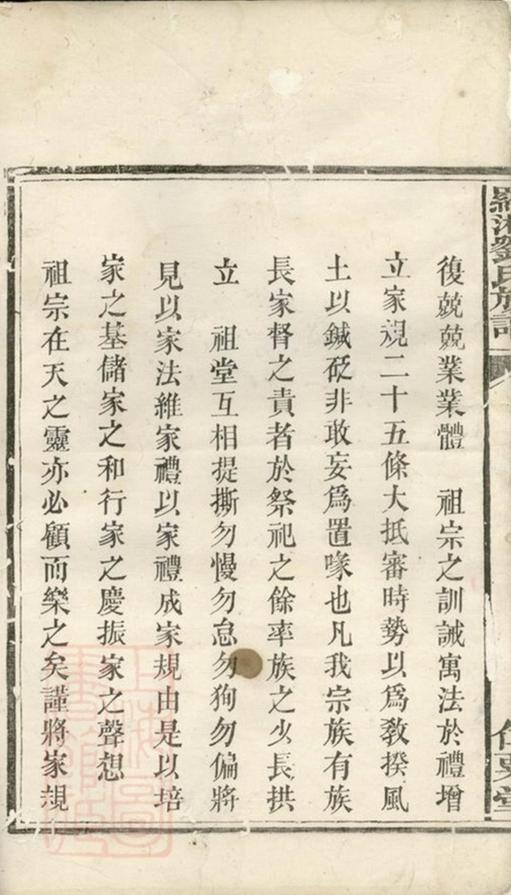 復兢兢業業體　祖宗之訓誡寓法於禮增
立家規二十五條大抵審時勢以爲敎揆風
土以鍼砭非敢妄爲置喙也凡我宗族有族
長家督之責者於祭祀之餘率族之少長拱
立　祖堂互相提撕勿慢勿怠勿狥勿偏將
見以家法維家禮以家禮成家規由是以培
家之基儲家之和行家之慶振家之聲想
祖宗在天之靈亦必顧而樂之矣謹將家規